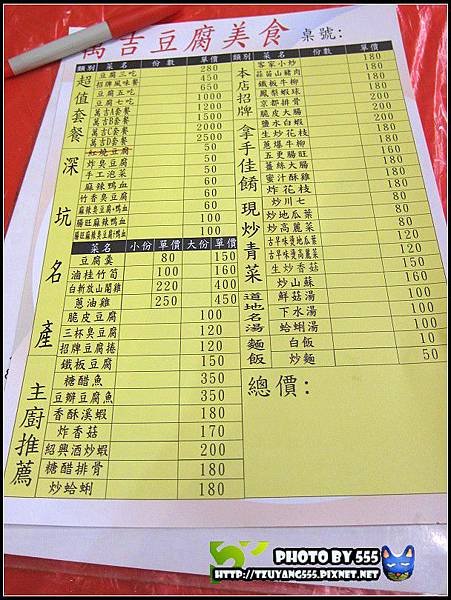 萬吉豆腐美食 桌號:
類別 菜名 份數 單價
超值套餐
豆腐三吃 280
招牌風味餐 450
豆腐五吃 650
豆腐七吃 1000
萬吉A套餐 1200
萬吉B套餐 1500
萬吉C套餐 2000
萬吉D套餐 2500
深坑名產
紅燒豆腐 50
炸臭豆腐 50
手工泡菜 50
麻辣鴨血 60
竹香臭豆腐 60
麻辣臭豆腐+鴨血 60
腸旺麻辣鴨血 100
腸旺麻辣臭豆腐+鴨血 100
菜名 小份 單價 大份 單價
豆腐羹 80 150
滷桂竹筍 100 160
白斬放山閹雞 220 400
蔥油雞 250 450
脆皮豆腐 100
三杯臭豆腐 120
招牌豆腐捲 120
鐵板豆腐 150
主廚推薦
糖醋魚 350
豆瓣豆腐魚 350
香酥溪蝦 180
炸香菇 170
紹興酒炒蝦 200
糖醋排骨 180
炒蛤蜊 180
類別 菜名 份數 單價
本店招牌 拿手佳餚
客家小炒 180
蒜苗山豬肉
鐵板牛柳
鳳梨蝦球
京都排骨
脆皮大腸
鹽水白蝦
生炒花枝
蔥爆牛柳
五更腸旺
薑絲大腸
蜜汁酥雞
炸花枝
現炒青菜
炒川七
炒地瓜葉
炒高麗菜
古早味燙地瓜葉
古早味燙高麗菜
生炒香菇
炒山蘇 160
道地名湯
鮮菇湯 100
下水湯 100
蛤蜊湯 100
麵飯
白飯 10
炒麵 50
總價:
PHOTO BY 555
HTTP://TZUYANG555.PIXNET.NET